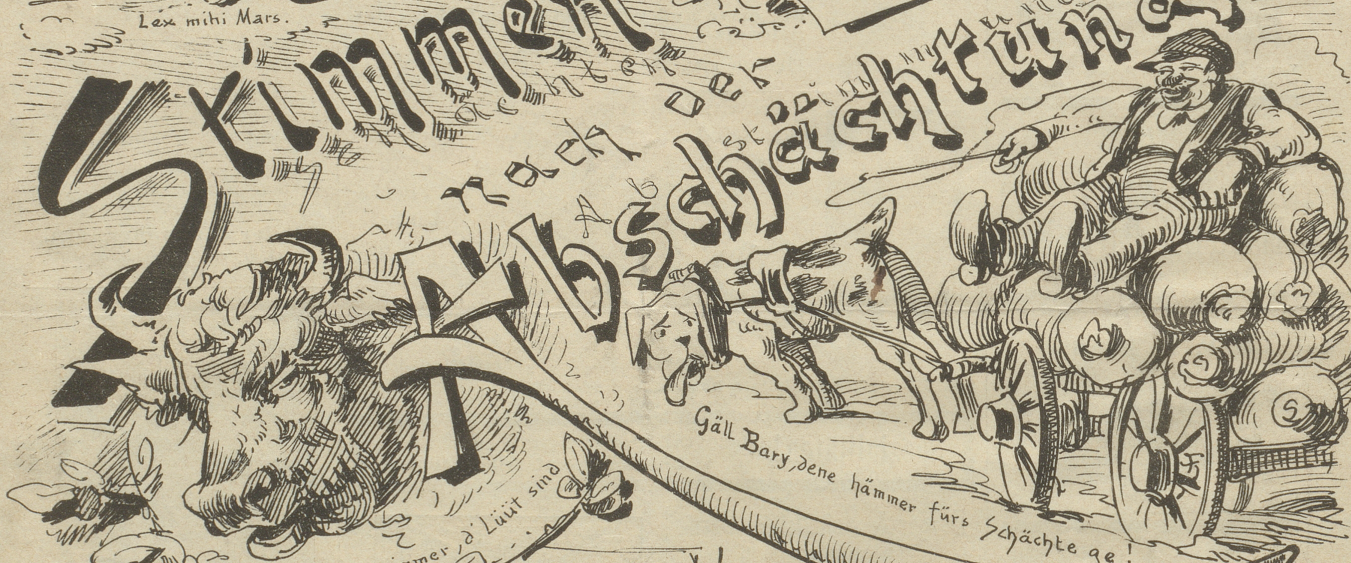 Lex mihi Mars.
Stimmen
nach der
Abschächtung
Gäll Bary, dene hämmer fürs Schächte ge!
d' Lüüt sind